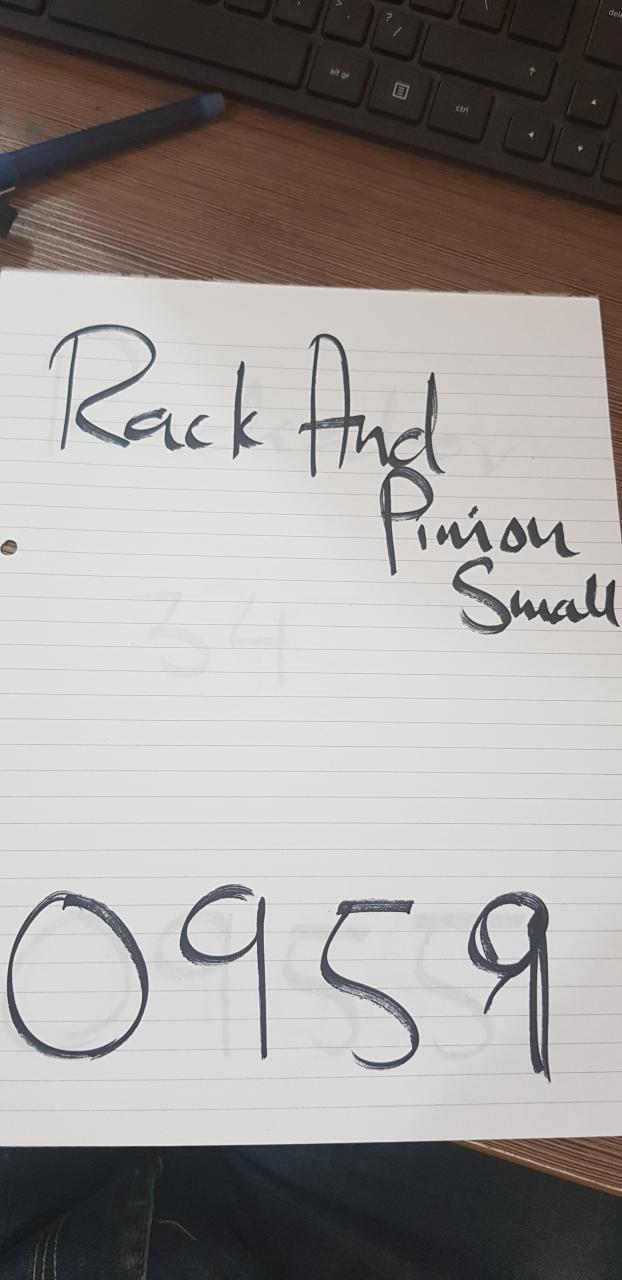 alt gr
ctrl
Rack And
Pinion
Small
34
0959